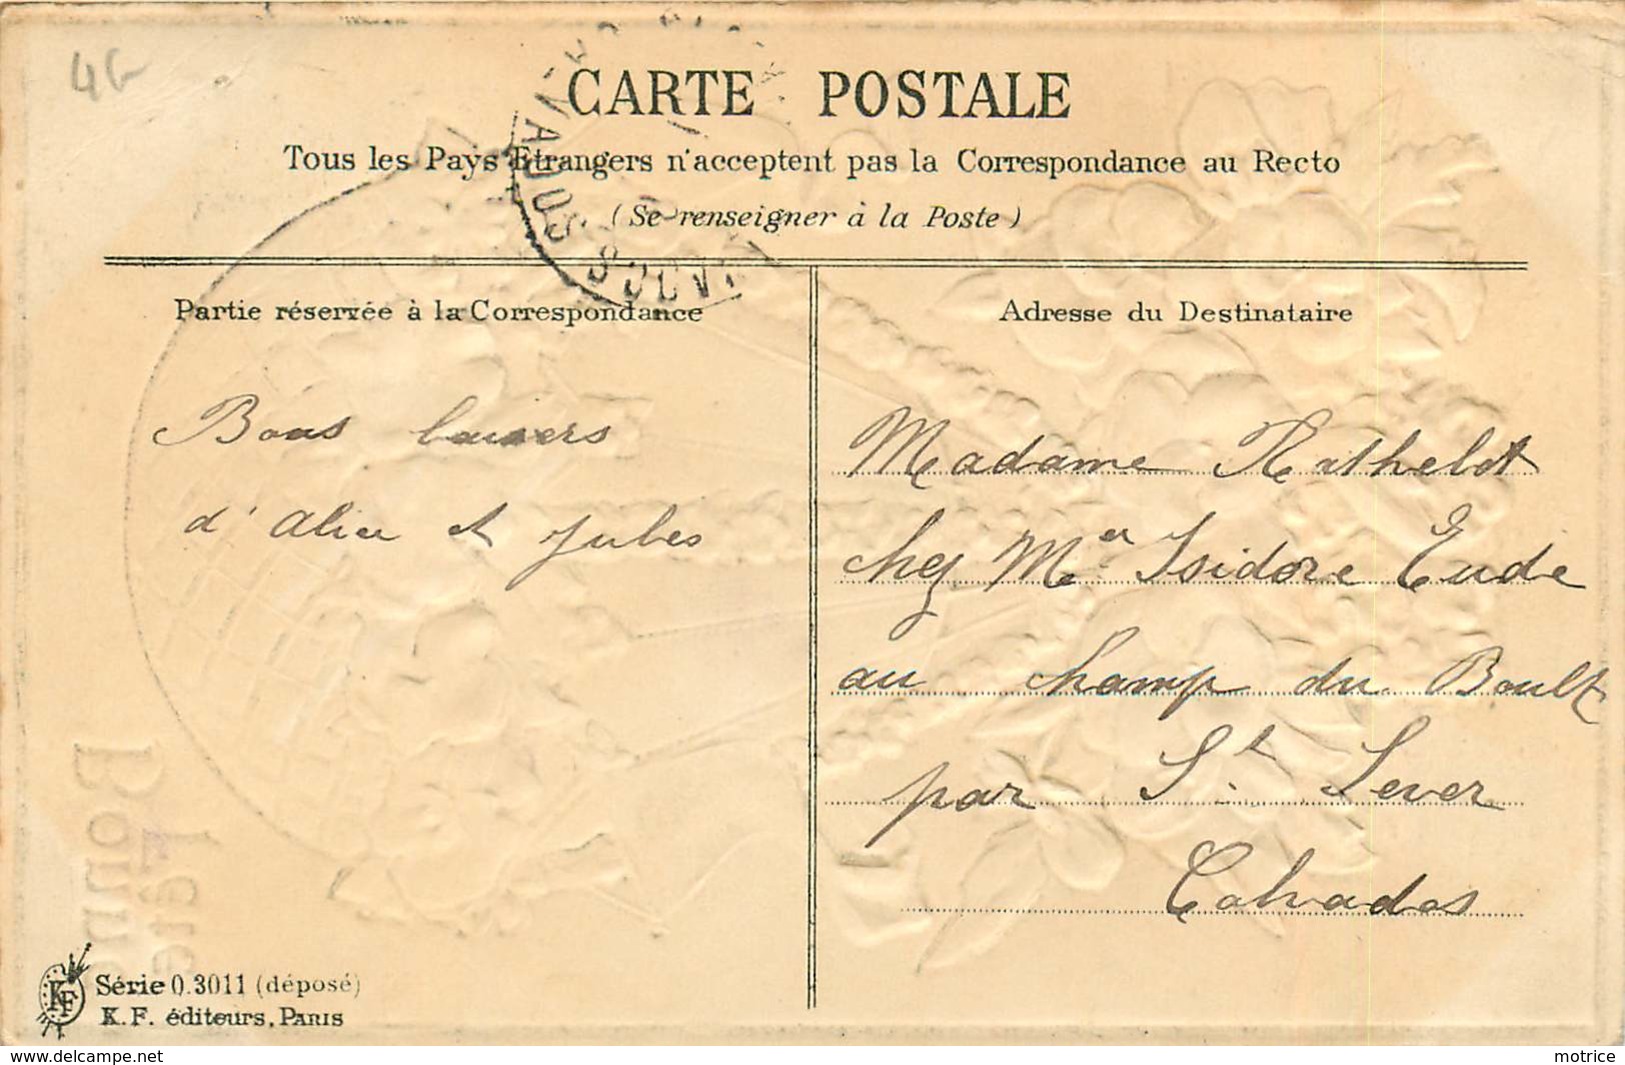 4G
CARTE POSTALE
Tous les Pays Etrangers n'acceptent pas la Correspondance au Recto
(Se renseigner à la Poste)
Partie réservée à la Correspondance
Adresse du Destinataire
Bons baisers
d'Alice et Jules
Madame Rathelot
chez Mr Isidore Eude
au champ du Boult
par St Sever
Calvados
Bonne
Fête
KF
Série 0.3011 (déposé)
K.F. éditeurs, PARIS
www.delcampe.net
motrice